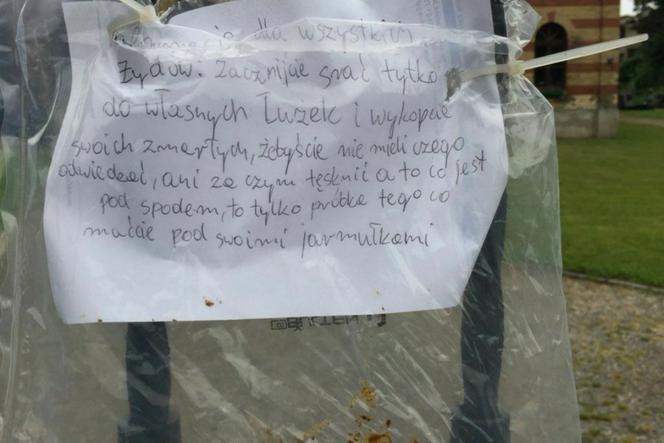 Informacja dla wszystkich
Żydów. Zacznijcie srać tylko
do własnych Łużek i wykopcie
swoich zmarłych, żebyście nie mieli czego
odwiedzać, ani za czym tęsknić a to co jest
pod spodem, to tylko próbka tego co
macie pod swoimi jarmułkami